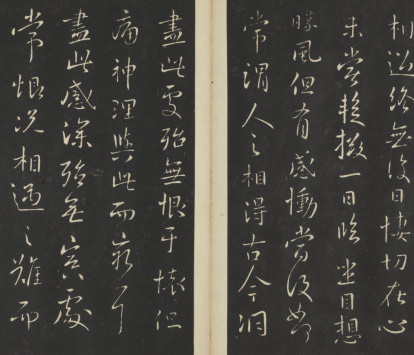 相過終無復日悽切在心
未嘗暫掇一日臨坐目想
勝風但有感慟當復如何
常謂人之相得古今洞
盡此處殆無恨于懷但
痛神理與此而窮耳
盡此感深殆無冥處
常恨況相遇之難而